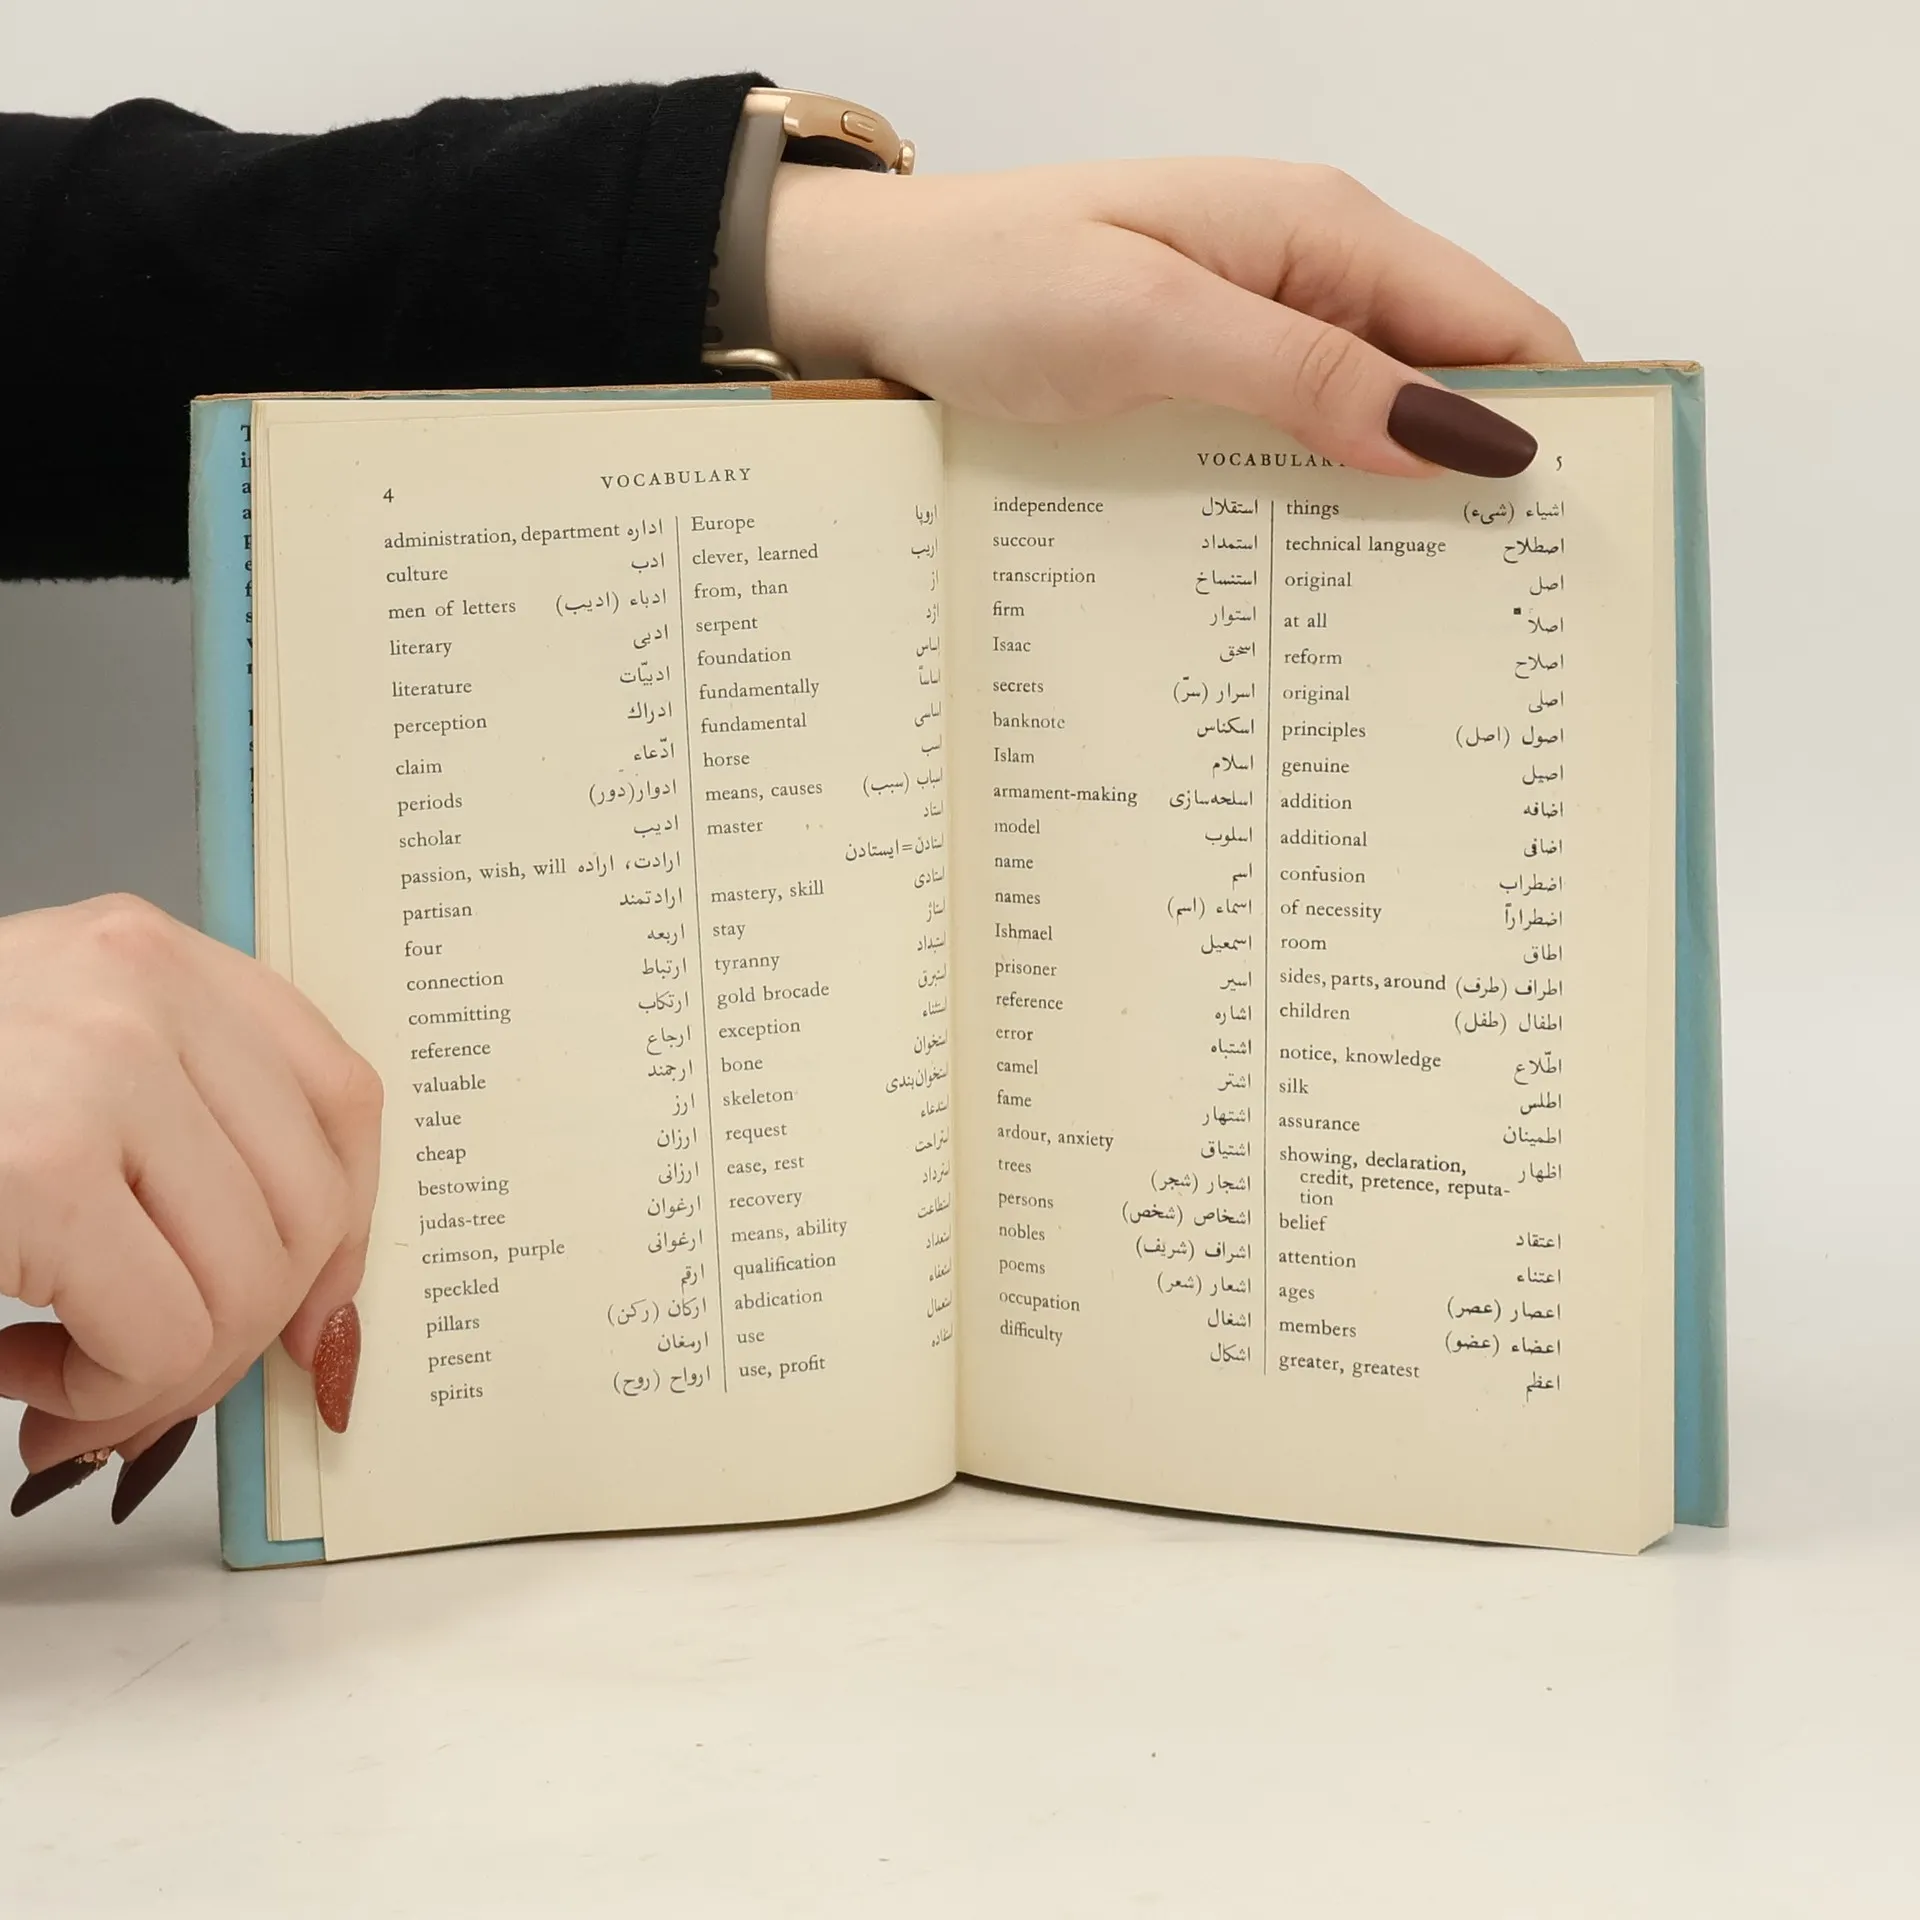 4
VOCABULARY
administration, department اداره
culture ادب
men of letters ادباء (اديب)
literary ادبى
literature ادبيّات
perception ادراك
claim ادّعاء
periods ادوار(دور)
scholar اديب
passion, wish, will ارادت، اراده
partisan ارادتمند
four اربعه
connection ارتباط
committing ارتكاب
reference ارجاع
valuable ارجمند
value ارز
cheap ارزان
bestowing ارزانى
judas-tree ارغوان
crimson, purple ارغوانى
speckled ارقم
pillars اركان (ركن)
present ارمغان
spirits ارواح (روح)
Europe اروپا
clever, learned اريب
from, than از
serpent
foundation اساس
fundamentally اساساً
fundamental اساسى
horse اسب
means, causes اسباب (سبب)
master استاد
استادن=ايستادن
mastery, skill استادى
stay
tyranny استبداد
gold brocade استبرق
exception استثناء
bone استخوان
skeleton استخوان‌بندى
request استدعاء
ease, rest استراحت
recovery استرداد
means, ability استطاعت
qualification استعداد
abdication استعفاء
use استعمال
use, profit استفاده
VOCABULAR
5
independence استقلال
succour استمداد
transcription استنساخ
firm استوار
Isaac اسحق
secrets اسرار (سرّ)
banknote اسكناس
Islam اسلام
armament-making اسلحه‌سازى
model اسلوب
name اسم
names اسماء (اسم)
Ishmael اسمعيل
prisoner اسير
reference اشاره
error اشتباه
camel اشتر
fame اشتهار
ardour, anxiety اشتياق
trees اشجار (شجر)
persons اشخاص (شخص)
nobles اشراف (شريف)
poems اشعار (شعر)
occupation اشغال
difficulty اشكال
things اشياء (شىء)
technical language اصطلاح
original اصل
at all اصلاً
reform اصلاح
original اصلى
principles اصول (اصل)
genuine اصيل
addition اضافه
additional اضافى
confusion اضطراب
of necessity اضطراراً
room اطاق
sides, parts, around اطراف (طرف)
children اطفال (طفل)
notice, knowledge اطّلاع
silk اطلس
assurance اطمينان
showing, declaration, اظهار
credit, pretence, reputa-
tion
belief اعتقاد
attention اعتناء
ages اعصار (عصر)
members اعضاء (عضو)
greater, greatest اعظم